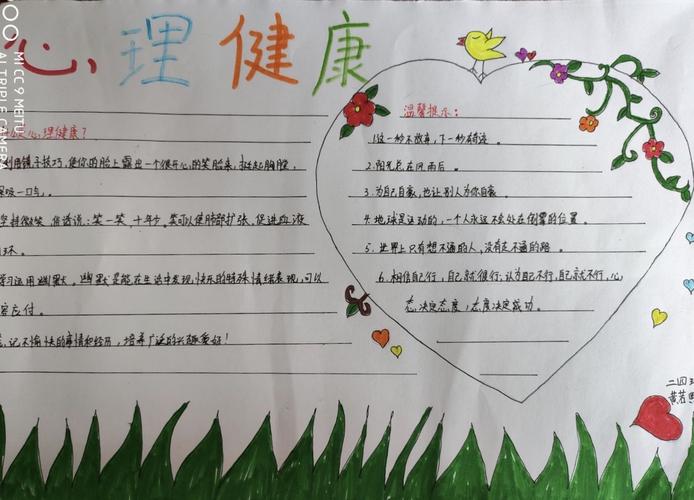 心理健康
MI CC 9 MEITU
AI TRIPLE CAMERA
心理健康？
用镜子技巧，使你的脸上露出一个很开心的笑脸来，挺起胸膛，
深吸一口气。
坚持微笑，俗话说：笑一笑，十年少。笑可以使肺部扩张，促进血液
循环。
学习运用幽默，幽默是能在生活中发现快乐的特殊情绪表现，可以
应付。
记不愉快的事情和经历，培养广泛的兴趣爱好！
温馨提示：
1.这一秒不放弃，下一秒有奇迹。
2.阳光总在风雨后。
3.为自己自豪，也让别人为你自豪。
4.地球是运动的，一个人永远不会处在倒霉的位置。
5.世界上只有想不通的人，没有走不通的路。
6.相信自己行，自己就很行；认为自己不行，自己就不行，心
态决定态度，态度决定成功。
二四
黄若